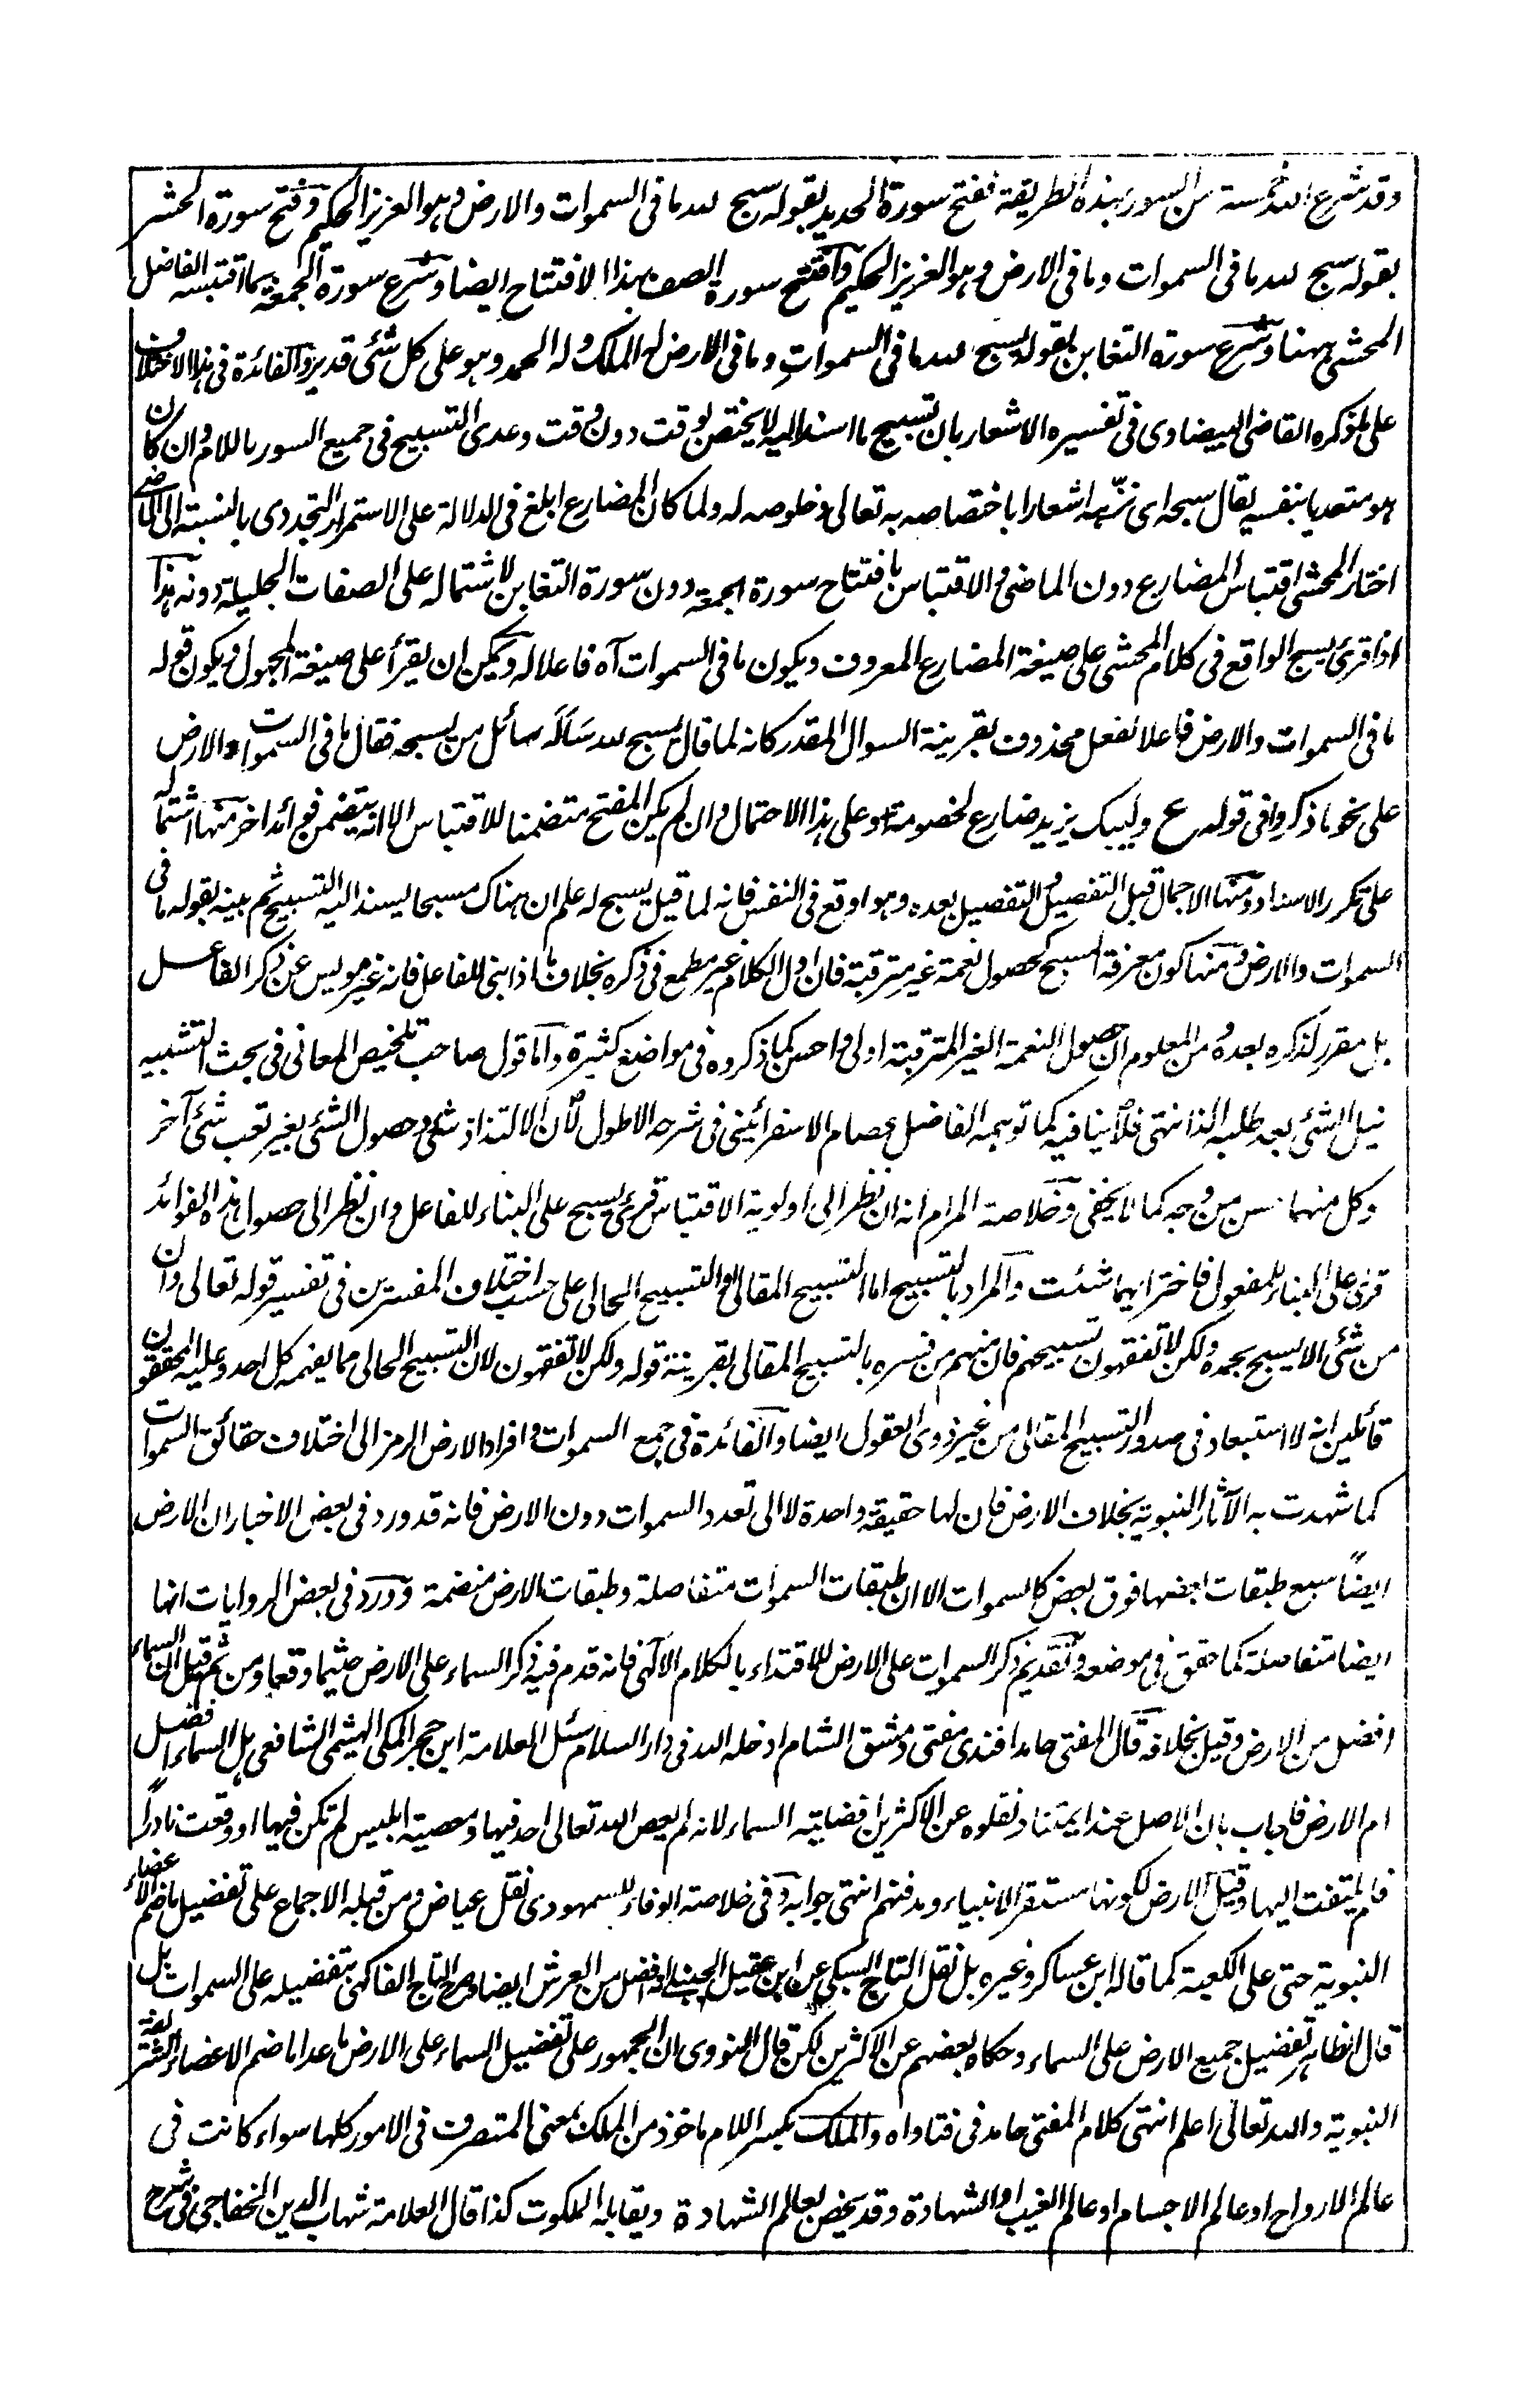 وقد شرع الله خمسة من السور بهذه الطريقة ففتح سورة الحديد بقوله سبح لله ما فى السموات والارض وهو العزيز الحكيم وفتح سورة الحشر
بقوله سبح لله ما فى السموات وما فى الارض وهو العزيز الحكيم وافتتح سورة الصف بهذا الافتتاح ايضا وشرع سورة الجمعة بما اقتبسه الفاضل
المحشى ههنا وشرع سورة التغابن بقوله يسبح لله ما فى السموات وما فى الارض له الملك وله الحمد وهو على كل شئ قدير والفائدة فى هذا الاختلاف
على ما ذكره القاضى البيضاوى فى تفسيره الاشعار بان تسبيح ما اسند اليه لا يختص بوقت دون وقت وعدى التسبيح فى جميع السور باللام وان كان
هو متعديا بنفسه يقال سبحه اى نزّهه اشعارا باختصاصه به تعالى وخلوصه له ولما كان المضارع ابلغ فى الدلالة على الاستمرار التجددى بالنسبة الى الماضى
اختار المحشى اقتباس المضارع دون الماضى والاقتباس بافتتاح سورة الجمعة دون سورة التغابن لاشتماله على الصفات الجليلة دونه هذا
اذا قرئ يسبح الواقع فى كلام المحشى على صيغة المضارع المعروف ويكون ما فى السموات آه فاعلا له ويمكن ان يقرأ على صيغة المجهول ويكون قوله
ما فى السموات والارض فاعلا لفعل محذوف بقرينة السوال المقدر كانه لما قال يسبح لله سَاَلَه سائل من يسبحه فقال ما فى السموات والارض
على نحو ما ذكروا فى قوله ع وليبك يزيد ضارع لخصومة وعلى هذا الاحتمال وان لم يكن المفتح متضمنا للاقتباس الا انه يتضمن فوائد اخر منها اشتماله
على تكرر الاسناد ومنها الاجمال قبل التفصيل والتفصيل بعده وهو اوقع فى النفس فانه لما قيل يسبح له علم ان هناك مسبحا يسند اليه التسبيح ثم بينه بقوله ما فى
السموات والارض ومنها كون معرفة المسبح كحصول نعمة غير مترقبة فان اول الكلام غير مطمع فى ذكره بخلاف ما اذا بنى للفاعل فانه غير مويس عن ذكر الفاعل
بل مقرر لذكره بعده ومن المعلوم ان حصول النعمة الغير المترقبة اولى واحسن كما ذكروه فى مواضع كثيرة واما قول صاحب تلخيص المعانى فى بحث التشبيه
نيل الشئ بعد طلبه الذ انتهى فلا ينافيه كما توهمه الفاضل عصام الاسفرائينى فى شرحه الاطول لان الالتذاذ شئ وحصول الشئ بغير تعب شئ آخر
وكل منهما حسن من وجه كما لا يخفى وخلاصة المرام انه ان نظر الى اولوية الاقتباس قرئ يسبح على البناء للفاعل وان نظر الى حصول هذه الفوائد
قرئ على البناء للمفعول فاختر ايهما شئت والمراد بالتسبيح اما التسبيح المقالى او التسبيح الحالى على حسب اختلاف المفسرين فى تفسير قوله تعالى وان
من شئ الا يسبح بحمده ولكن لا تفقهون تسبيحهم فان منهم من فسره بالتسبيح المقالى بقرينة قوله ولكن لا تفقهون لان التسبيح الحالى مما يفهمه كل احد وعليه المحققون
قائلين انه لا استبعاد فى صدور التسبيح المقالى من غير ذوى العقول ايضا والفائدة فى جمع السموات وافراد الارض الرمز الى اختلاف حقائق السموات
كما شهدت به الآثار النبوية بخلاف الارض فان لها حقيقة واحدة لا الى تعدد السموات دون الارض فانه قد ورد فى بعض الاخبار ان الارض
ايضاً سبع طبقات بعضها فوق بعض كالسموات الا ان طبقات السموات متفاصلة وطبقات الارض منضمة وورد فى بعض الروايات انها
ايضا متفاصلة كما حقق فى موضعه وتقديم ذكر السموات على الارض للاقتداء بالكلام الآلهى فانه قدم فيه ذكر السماء على الارض حيثما وقعا ومن ثم قيل ان السماء
افضل من الارض وقيل بخلافه قال المفتى حامد افندى مفتى دمشق الشام ادخله الله فى دار السلام سئل العلامة ابن حجر المكى الهيثمى الشافعى هل السماء افضل
ام الارض فاجاب بان الاصل عند ايمتنا ونقلوه عن الاكثرين افضلية السماء لانه لم يعص الله تعالى احد فيها ومعصية ابليس لم تكن فيها او وقعت نادراً
فلم يلتفت اليها وقيل الارض لكونها مستقر الانبياء ومدفنهم انتهى جوابه وفى خلاصة الوفاء للسمهودى نقل عياض ومن قبله الاجماع على تفضيل ما ضم الاعضاء
النبوية حتى على الكعبة كما قاله ابن عساكر وغيره بل نقل التاج السبكى عن ابن عقيل الحنبلى انه افضل من العرش ايضا وصرح التاج الفاكهى بتفضيله على السموات بل
قال الظاهر تفضيل جميع الارض على السماء وحكاه بعضهم عن الاكثرين لكن قال النووى ان الجمهور على تفضيل السماء على الارض ما عدا ما ضم الاعضاء الشريفة
النبوية والله تعالى اعلم انتهى كلام المفتى حامد فى فتاواه والملك بكسر اللام ماخوذ من الملك بمعنى المتصرف فى الامور كلها سواء كانت فى
عالم الارواح او عالم الاجسام او عالم الغيب او الشهادة وقد يخص بعالم الشهادة ويقابله الملكوت كذا قال العلامة شهاب الدين الخفاجى فى شرح